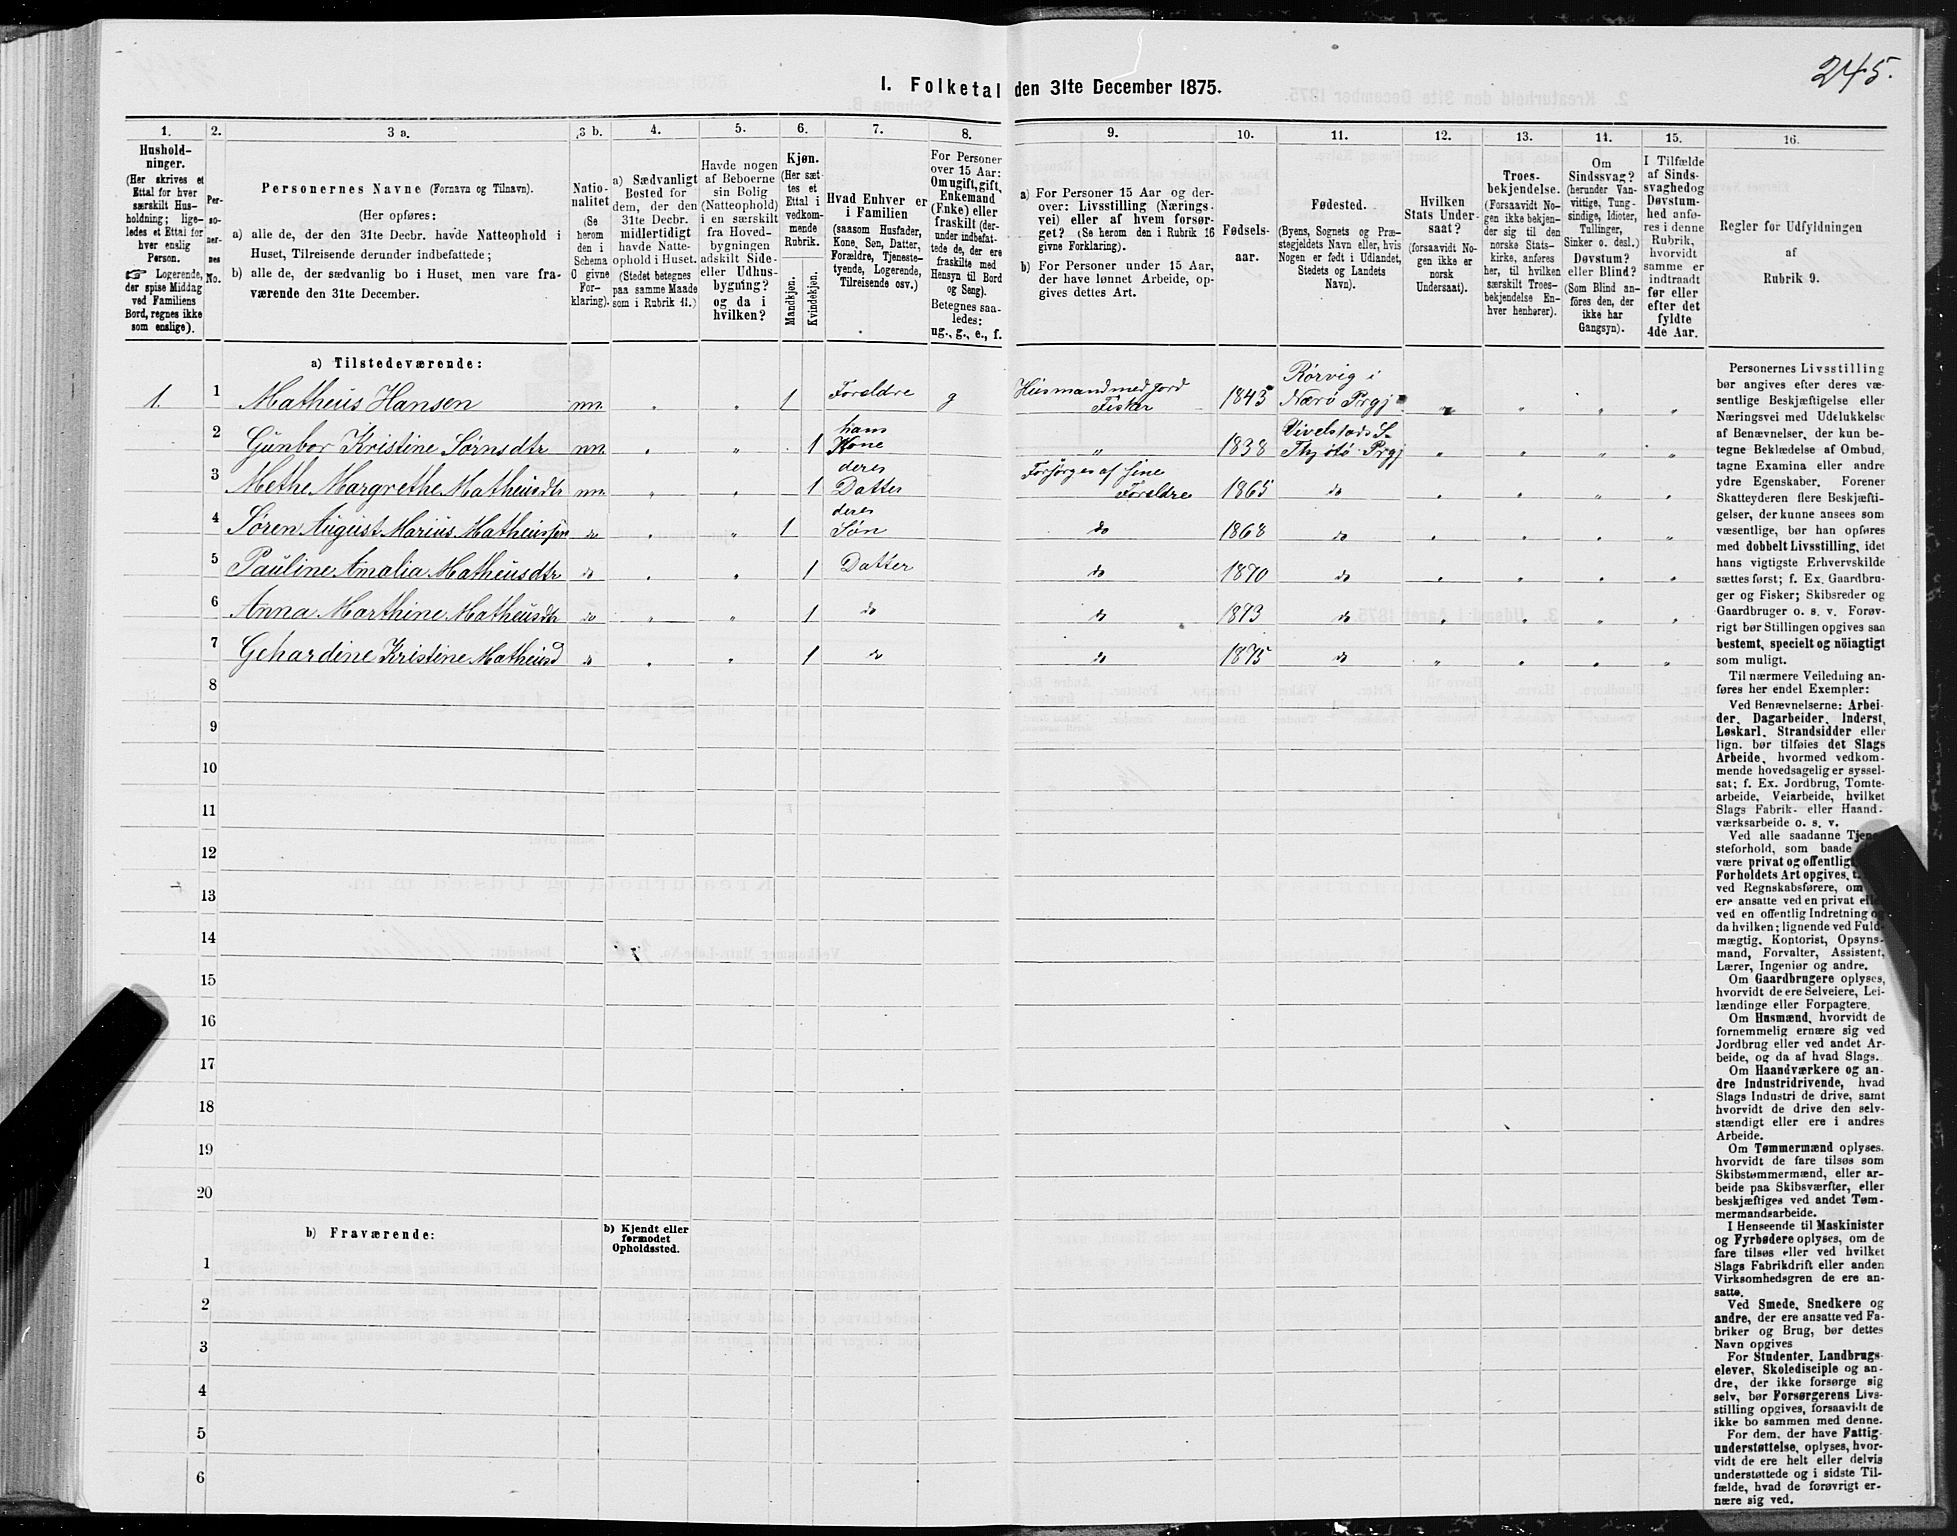 245.
I. Folketal den 31te December 1875.
1.
Hushold-
ninger.
(Her skrives et
Ettal for hver
særskilt Hus-
holdning; lige-
ledes et Ettal for
hver enslig
Person.
☞ Logerende,
der spise Middag
ved Familiens
Bord, regnes ikke
som enslige).
2.
Per-
so-
ner-
nes
No.
3 a.
Personernes Navne (Fornavn og Tilnavn).
(Her opføres:
a) alle de, der den 31te Decbr. havde Natteophold i
Huset, Tilreisende derunder indbefattede;
b) alle de, der sædvanlig bo i Huset, men vare fra-
værende den 31te December.
3 b.
Natio-
nalitet
(Se
herom
den i
Schema
C givne
For-
klaring).
4.
a) Sædvanligt
Bosted for
dem, der den
31te Decbr.
midlertidigt
havde Natte-
ophold i Huset.
(Stedet betegnes
paa samme Maade
som i Rubrik 11.)
5.
Havde nogen
af Beboerne
sin Bolig
(Natteophold)
i en særskilt
fra Hoved-
bygningen
adskilt Side-
eller Udhus-
bygning?
og da i
hvilken?
6.
Kjøn.
(Her sæt-
tes et
Ettal i
vedkom-
mende
Rubrik.
Mandkjøn.
Kvindekjøn.
7.
Hvad Enhver er
i Familien
(saasom Husfader,
Kone, Søn, Datter,
Forældre, Tjeneste-
tyende, Logerende,
Tilreisende osv.)
8.
For Personer
over 15 Aar:
Om ugift, gift,
Enkemand
(Enke) eller
fraskilt (der-
under indbefat-
tede de, der ere
fraskilte med
Hensyn til Bord
og Seng).
Betegnes saa-
ledes:
ug., g., e., f.
9.
a) For Personer 15 Aar og der-
over: Livsstilling (Nærings-
vei) eller af hvem forsør-
get? (Se herom den i Rubrik 16
givne Forklaring).
b) For Personer under 15 Aar,
der have lønnet Arbeide, op-
gives dettes Art.
10.
Fødsels-
aar.
11.
Fødested.
(Byens, Sognets og Præ-
stegjeldets Navn eller, hvis
Nogen er født i Udlandet,
Stedets og Landets
Navn).
12.
Hvilken
Stats Under-
saat?
(forsaavidt No-
gen ikke er
norsk
Undersaat).
13.
Troes-
bekjendelse.
(Forsaavidt No-
gen ikke bekjen-
der sig til den
norske Stats-
kirke, anføres
her, til hvilken
særskilt Troes-
bekjendelse En-
hver henhører).
14.
Om
Sindssvag?
(herunder Van-
vittige, Tung-
sindige, Idioter,
Tullinger,
Sinker o. desl.)
Døvstum?
eller Blind?
(Som Blind an-
føres den, der
ikke har
Gangsyn).
15.
I Tilfælde
af Sinds-
svaghed og
Døvstum-
hed anfø-
res i denne
Rubrik,
hvorvidt
samme er
indtraadt
før eller
efter det
fyldte
4de Aar.
16.
Regler for Udfyldningen
af
Rubrik 9.
a) Tilstedeværende:
1. 1 Matheus Hansen nn. „ „ 1 Foreldre g Husmand med jord Fisker 1843 Rørvig i Nærø Prgj „ „ „ „
2 Gunbor Kristine Sørnsdtr nn. „ „ 1 hans Kone „ 1838 Vivelstads S. Thjøtø Prgj „ „ „ „
3 Methe Margrethe Matheusdtr nn. „ „ 1 deres Datter Forsørges af sine Foreldre 1865 do „ „ „ „
4 Søren August Marius Matheussen do „ „ 1 deres Søn do 1868 do „ „ „ „
5 Pauline Amalia Matheusdtr do „ „ 1 Datter do 1870 do „ „ „ „
6 Anna Marthine Matheusdtr do „ „ 1 do do 1873 do „ „ „ „
7 Gehardine Kristine Matheusd do „ „ 1 do do 1875 do „ „ „ „
8
9
10
11
12
13
14
15
16
17
18
19
20
b) Fraværende:
b) Kjendt eller
formodet
Opholdssted.
1
2
3
4
5
6
Personernes Livsstilling
bør angives efter deres væ-
sentlige Beskjæftigelse eller
Næringsvei med Udelukkelse
af Benævnelser, der kun be-
tegne Beklædelse af Ombud,
tagne Examina eller andre
ydre Egenskaber. Forener
Skatteyderen flere Beskjæfti-
gelser, der kunne ansees som
væsentlige, bør han opføres
med dobbelt Livsstilling, idet
hans vigtigste Erhvervskilde
sættes først; f. Ex. Gaardbru-
ger og Fisker; Skibsreder og
Gaardbruger o. s. v. Forøv-
rigt bør Stillingen opgives saa
bestemt, specielt og nöiagtigt
som muligt.
Til nærmere Veiledning an-
føres her endel Exempler:
Ved Benævnelserne: Arbei-
der, Dagarbeider, Inderst,
Løskarl, Strandsidder eller
lign. bør tilføies det Slags
Arbeide, hvormed vedkom-
mende hovedsagelig er syssel-
sat; f. Ex. Jordbrug, Tomte-
arbeide, Veiarbeide, hvilket
Slags Fabrik- eller Haand-
værksarbeide o. s. v.
Ved alle saadanne
steforhold, som baade
være privat og offentligt
Forholdets Art opgives,
ved Regnskabsførere, om
ere ansatte ved en privat
ved en offentlig Indretning
da hvilken; lignende ved Fuld-
mægtig, Kontorist, Opsyns-
mand, Forvalter, Assistent,
Lærer, Ingeniør og andre.
Om Gaardbrugere oplyses,
hvorvidt de ere Selveiere, Lei-
lændinge eller Forpagtere.
Om Husmænd, hvorvidt de
fornemmelig ernære sig ved
Jordbrug eller ved andet Ar-
beide, og da af hvad Slags.
Om Haandværkere og an-
dre Industridrivende, hvad
Slags Industri de drive, samt
hvorvidt de drive den selv-
stændigt eller ere i andres
Arbeide.
Om Tømmermænd oplyses,
hvorvidt de fare tilsøs som
Skibstømmermænd, eller ar-
beide paa Skibsværfter, eller
beskjæftiges ved andet Tøm-
mermandsarbeide.
I Henseende til Maskinister
og Fyrbødere oplyses, om de
fare tilsøs eller ved hvilket
Slags Fabrikdrift eller anden
Virksomhedsgren de ere an-
satte.
Ved Smede, Snedkere og
andre, der ere ansatte ved Fa-
briker og Brug, bør dettes
Navn opgives
For Studenter, Landbrugs-
elever, Skoledisciple og an-
dre, der ikke forsørge sig
selv, bør Forsørgerens Livs-
stilling opgives, forsaavidt de
ikke bo sammen med denne.
For dem, der have Fattig-
understøttelse, oplyses, hvor-
vidt de ere helt eller delvis
understøttede og i sidste Til-
fælde, hvad de forøvrigt er-
nære sig ved.